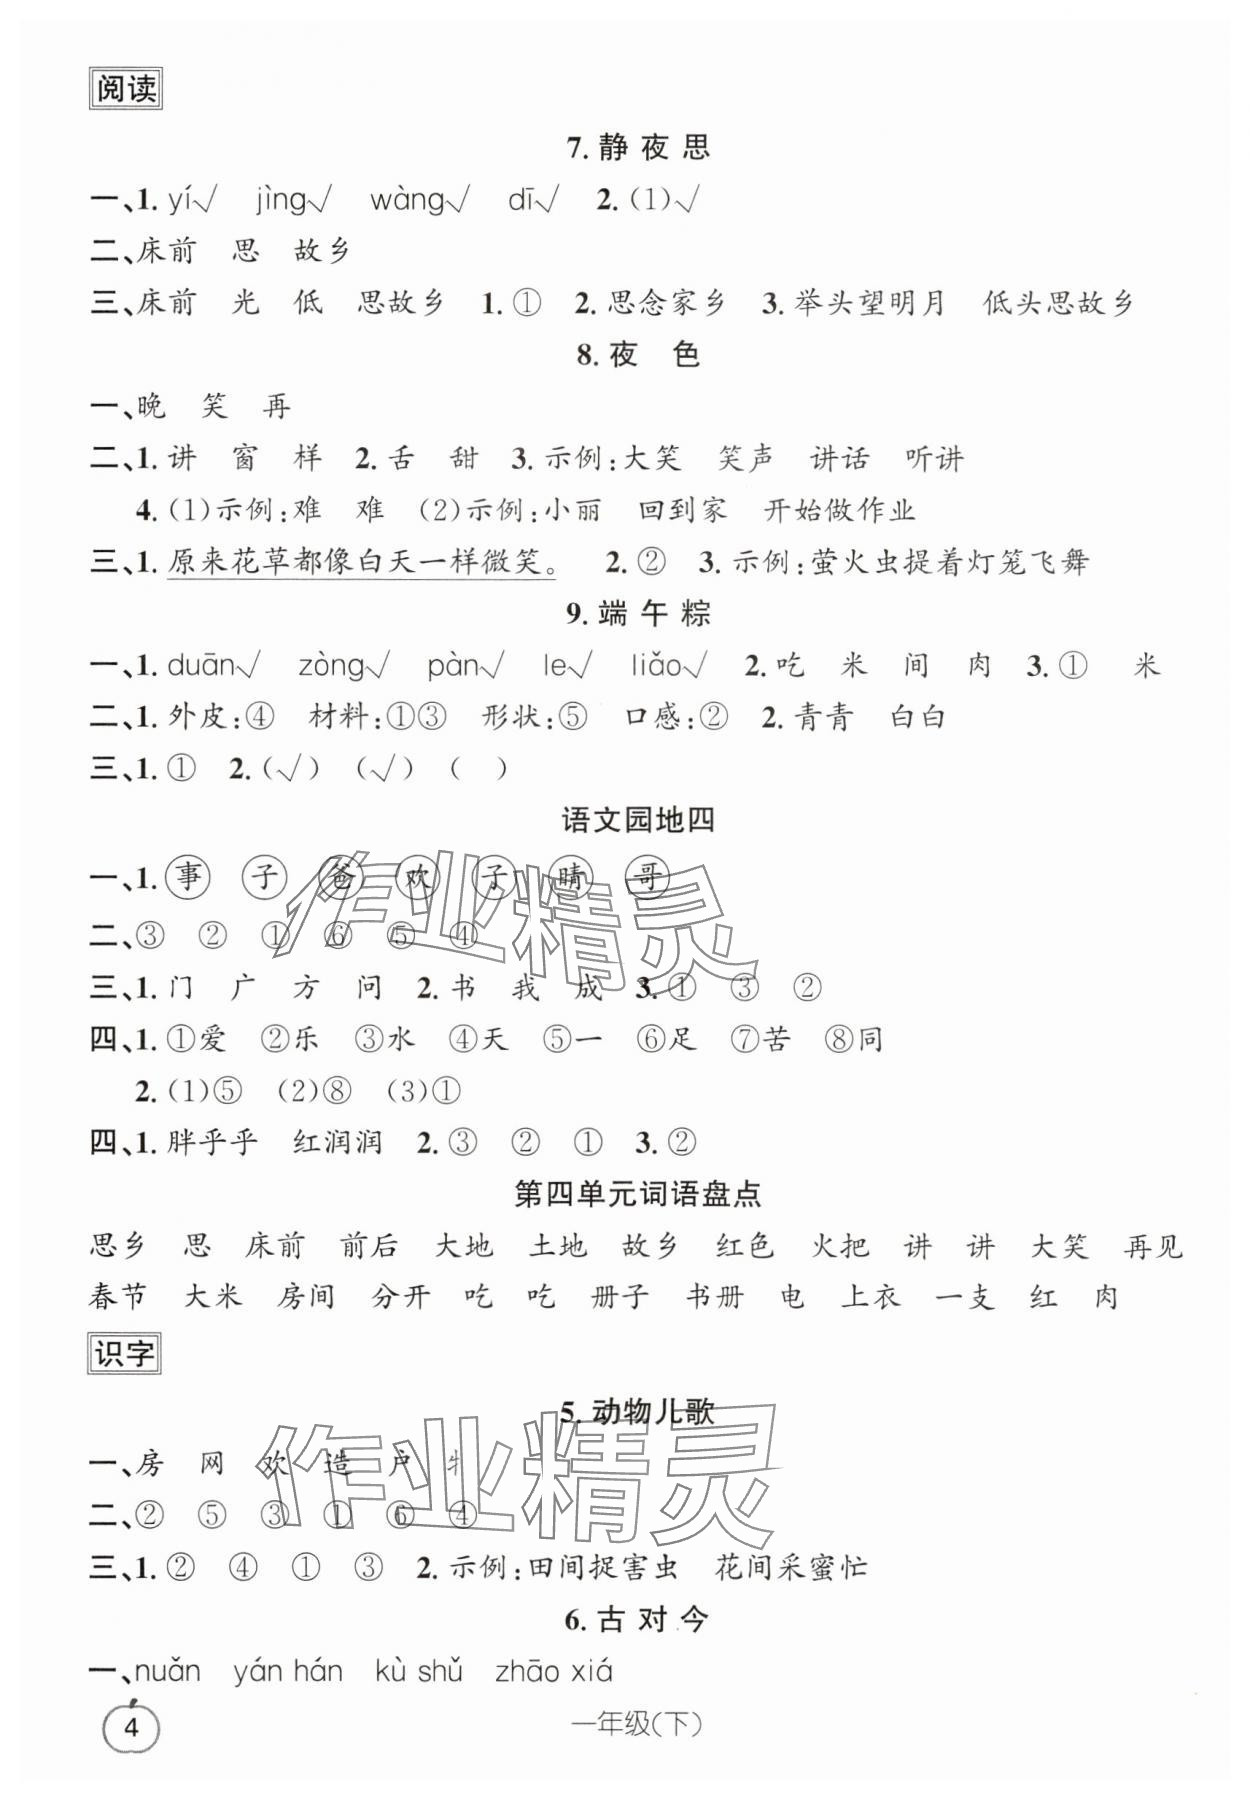 阅读
7. 静 夜 思
一、1. yí√ jìng√ wàng√ dī√ 2. (1)√
二、床前 思 故乡
三、床前 光 低 思故乡 1. ① 2. 思念家乡 3. 举头望明月 低头思故乡
8. 夜 色
一、晚 笑 再
二、1. 讲 窗 样 2. 舌 甜 3. 示例:大笑 笑声 讲话 听讲
4. (1)示例:难 难 (2)示例:小丽 回到家 开始做作业
三、1. 原来花草都像白天一样微笑。 2. ② 3. 示例:萤火虫提着灯笼飞舞
9. 端 午 粽
一、1. duān√ zòng√ pàn√ le√ liǎo√ 2. 吃 米 间 肉 3. ① 米
二、1. 外皮:④ 材料:①③ 形状:⑤ 口感:② 2. 青青 白白
三、1. ① 2. (√) (√) ( )
语文园地四
一、1. 事 子 爸 欢 子 晴 哥
二、③ ② ① ⑥ ⑤ ④
三、1. 门 广 方 问 2. 书 我 成 3. ① ③ ②
四、1. ①爱 ②乐 ③水 ④天 ⑤一 ⑥足 ⑦苦 ⑧同
2. (1)⑤ (2)⑧ (3)①
四、1. 胖乎乎 红润润 2. ③ ② ① 3. ②
第四单元词语盘点
思乡 思 床前 前后 大地 土地 故乡 红色 火把 讲 讲 大笑 再见
春节 大米 房间 分开 吃 吃 册子 书册 电 上衣 一支 红 肉
识字
5. 动物儿歌
一、房 网 欢 造 户
二、② ⑤ ③ ① ⑥ ④
三、1. ② ④ ① ③ 2. 示例:田间捉害虫 花间采蜜忙
6. 古 对 今
一、nuǎn yán hán kù shǔ zhāo xiá
4
一年级(下)
作业精灵
作业精灵